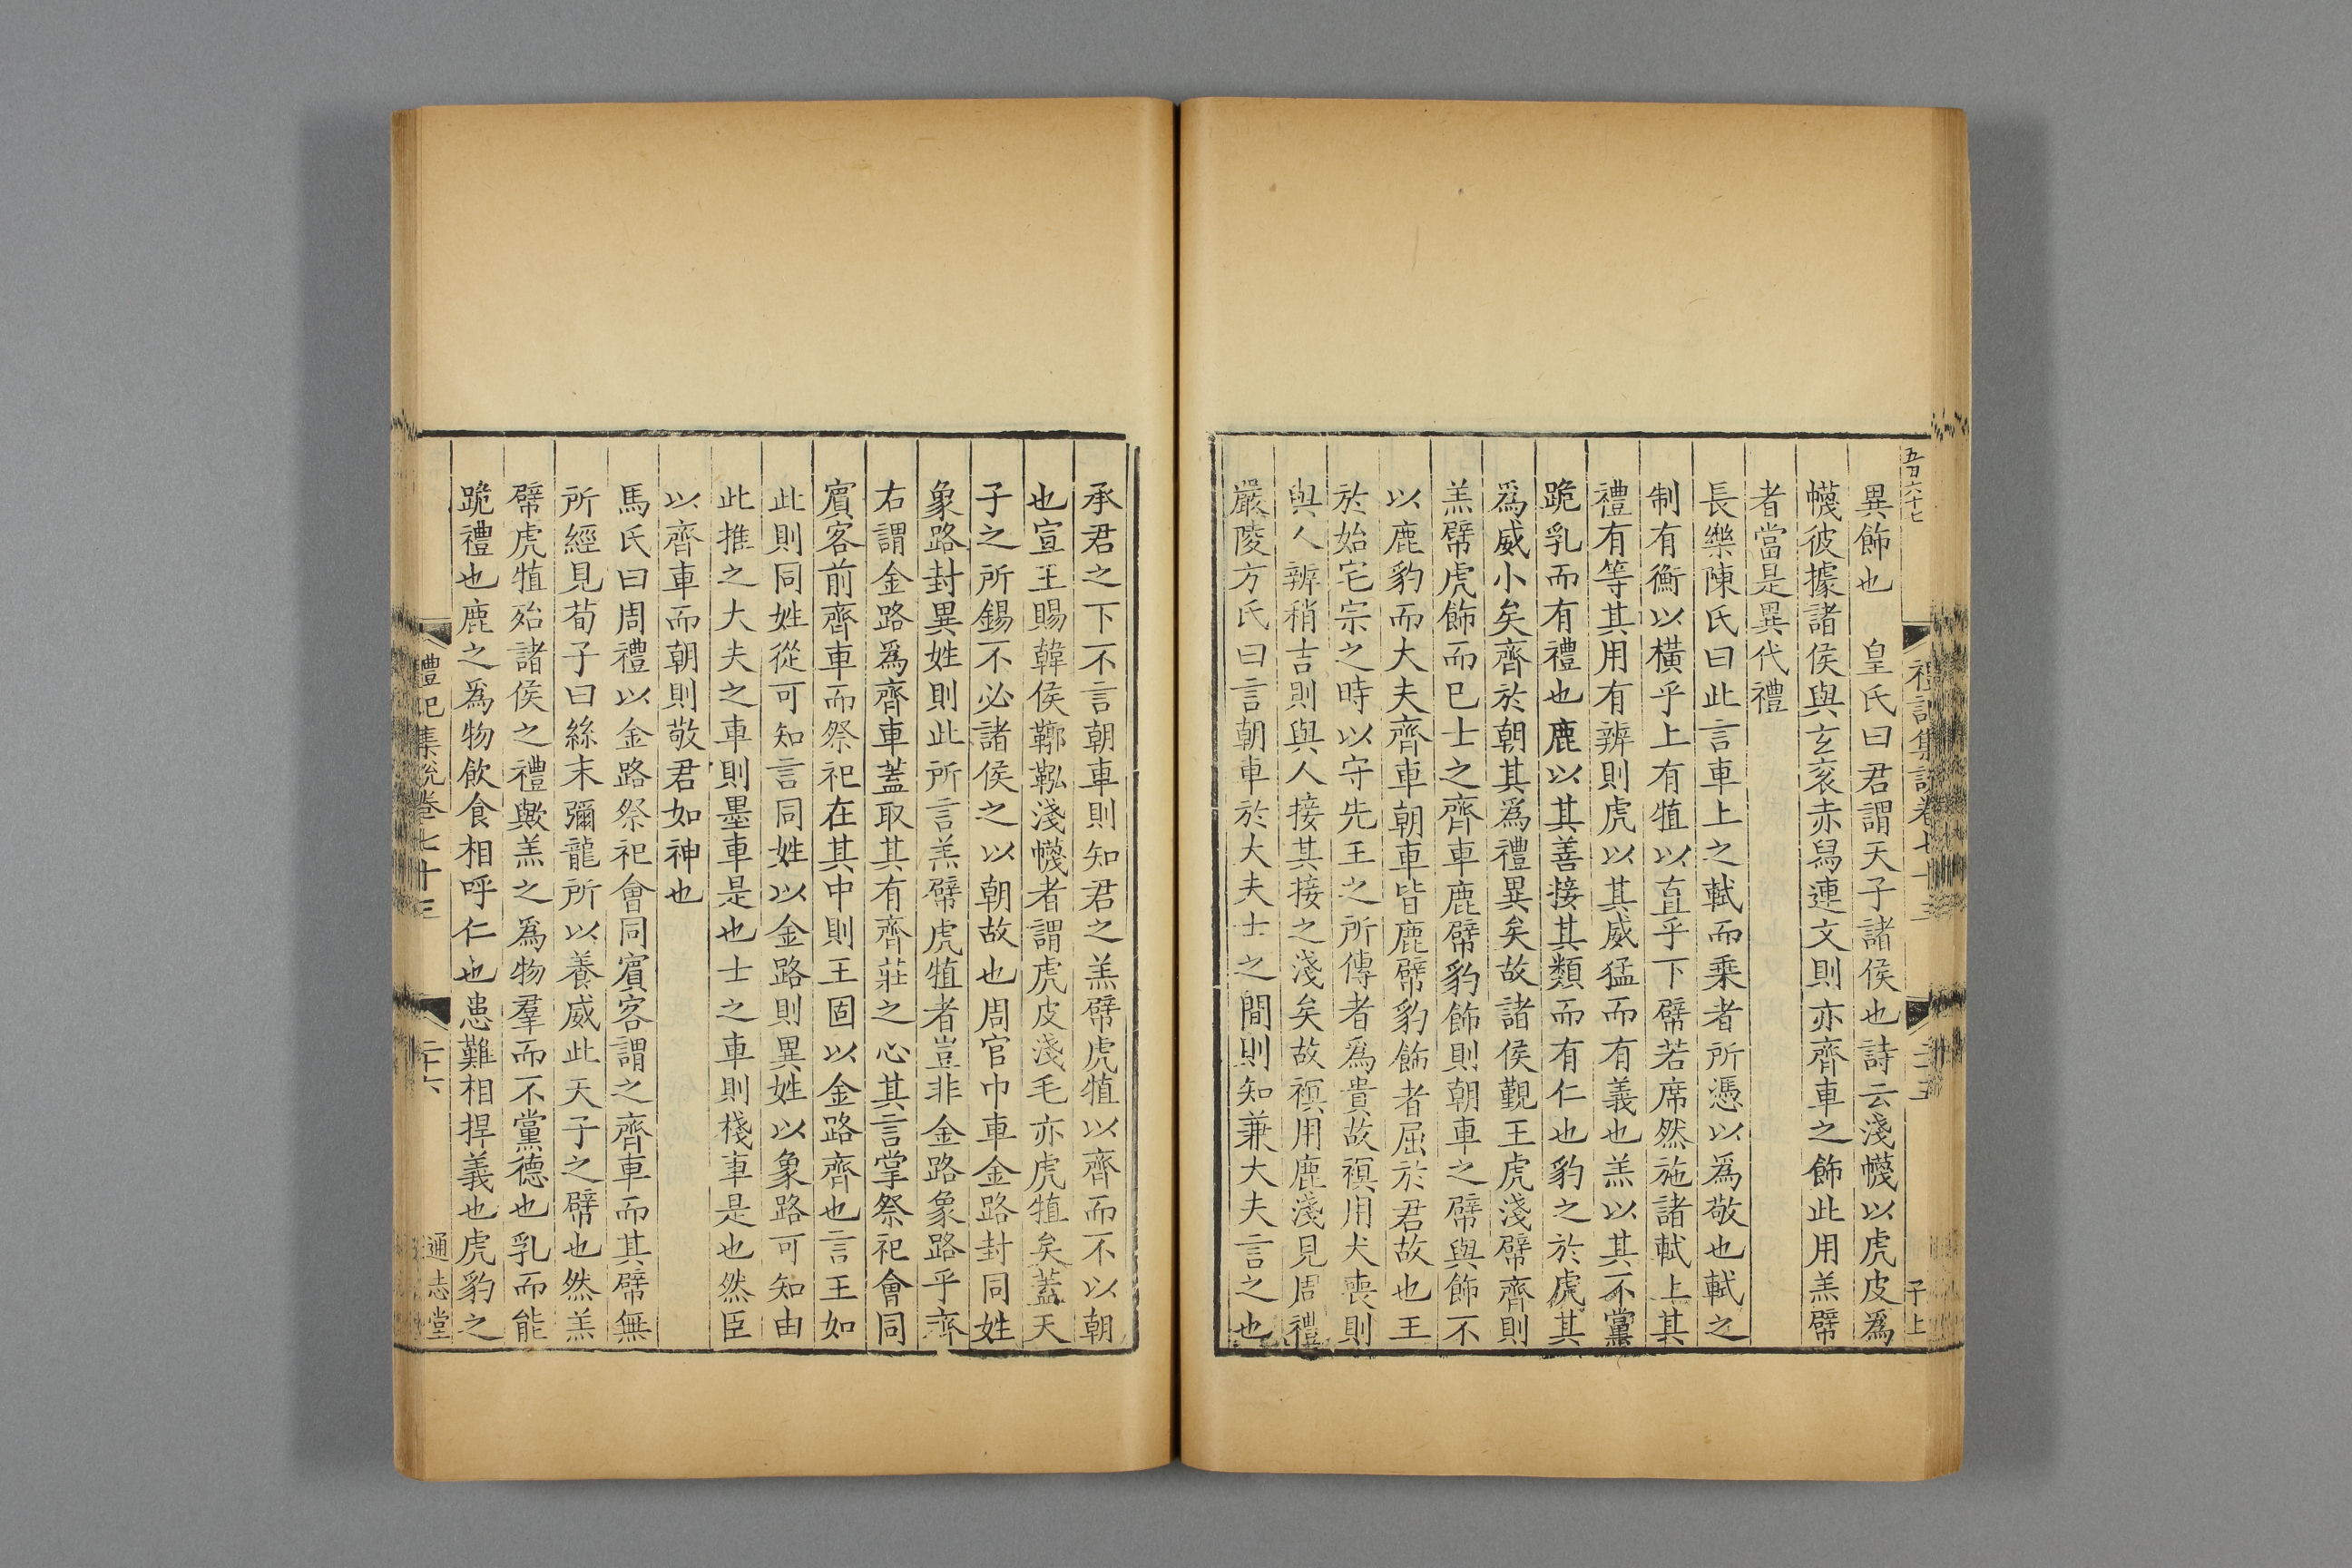 五百六十七
禮記集說卷七十三
二十五
子上
異飾也　皇氏曰君謂天子諸侯也詩云淺幭以虎皮爲
幭彼據諸侯與玄衮赤舄連文則亦齊車之飾此用羔幦
者當是異代禮
長樂陳氏曰此言車上之軾而乘者所憑以爲敬也軾之
制有衡以橫乎上有犆以直乎下幦若席然施諸軾上其
禮有等其用有辨則虎以其威猛而有義也羔以其不黨
跪乳而有禮也鹿以其善接其類而有仁也豹之於虎其
爲威小矣齊於朝其爲禮異矣故諸侯覲王虎淺幦齊則
羔幦虎飾而已士之齊車鹿幦豹飾則朝車之幦與飾不
以鹿豹而大夫齊車朝車皆鹿幦豹飾者屈於君故也王
於始宅宗之時以守先王之所傳者爲貴故𧜀用犬喪則
與人辨稍吉則與人接其接之淺矣故𧜀用鹿淺見周禮
嚴陵方氏曰言朝車於大夫士之間則知兼大夫言之也
承君之下不言朝車則知君之羔幦虎犆以齊而不以朝
也宣王賜韓侯鞹鞃淺幭者謂虎皮淺毛亦虎犆矣蓋天
子之所錫不必諸侯之以朝故也周官巾車金路封同姓
象路封異姓則此所言羔幦虎犆者豈非金路象路乎齊
右謂金路爲齊車蓋取其有齊莊之心其言掌祭祀會同
賓客前齊車而祭祀在其中則王固以金路齊也言王如
此則同姓從可知言同姓以金路則異姓以象路可知由
此推之大夫之車則墨車是也士之車則棧車是也然臣
以齊車而朝則敬君如神也
馬氏曰周禮以金路祭祀會同賓客謂之齊車而其幦無
所經見荀子曰絲末彌龍所以養威此天子之幦也然羔
幦虎犆殆諸侯之禮歟羔之爲物羣而不黨德也乳而能
跪禮也鹿之爲物飲食相呼仁也患難相捍義也虎豹之
禮記集說卷七十三
二十六
通志堂